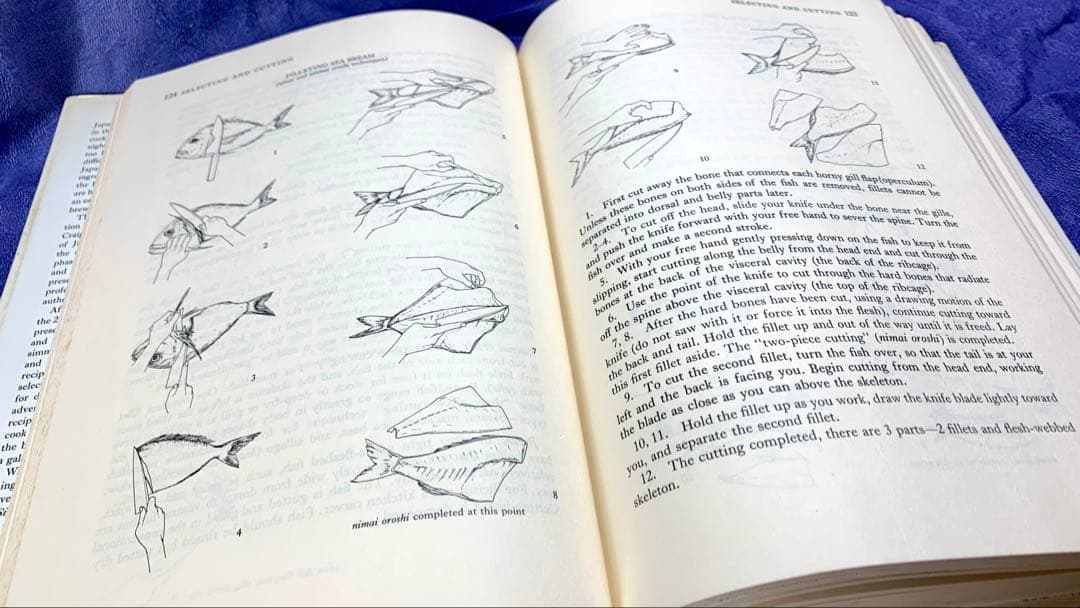 124 SELECTING AND CUTTING
FILLETING SEA BREAM
1
2
3
4
5
6
7
8
nimai oroshi completed at this point
SELECTING AND CUTTING 125
9
10
11
12
1. First cut away the bone that connects each horny gill flap (operculum).
Unless these bones on both sides of the fish are removed, fillets cannot be
separated into dorsal and belly parts later.
2–4. To cut off the head, slide your knife under the bone near the gills,
and push the knife forward with your free hand to sever the spine. Turn the
fish over and make a second stroke.
5. With your free hand gently pressing down on the fish to keep it from
slipping, start cutting along the belly from the head end and cut through the
bones at the back of the visceral cavity (the back of the ribcage).
6. Use the point of the knife to cut through the hard bones that radiate
off the spine above the visceral cavity (the top of the ribcage).
7, 8. After the hard bones have been cut, using a drawing motion of the
knife (do not saw with it or force it into the flesh), continue cutting toward
the back and tail. Hold the fillet up and out of the way until it is freed. Lay
this first fillet aside. The "two-piece cutting' (nimai oroshi) is completed.
9. To cut the second fillet, turn the fish over, so that the tail is at your
left and the back is facing you. Begin cutting from the head end, working
the blade as close as you can above the skeleton.
10, 11. Hold the fillet up as you work, draw the knife blade lightly toward
you, and separate the second fillet.
12. The cutting completed, there are 3 parts—2 fillets and flesh-webbed
skeleton.